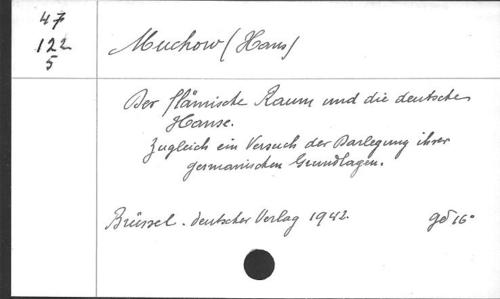 47
122
5
Muchow (Hans)
Der flämische Raum und die deutsche
Hanse.
Zugleich ein Versuch der Darlegung ihrer
germanischen Grundlagen.
Brüssel. deutscher Verlag 1942. gd 16°